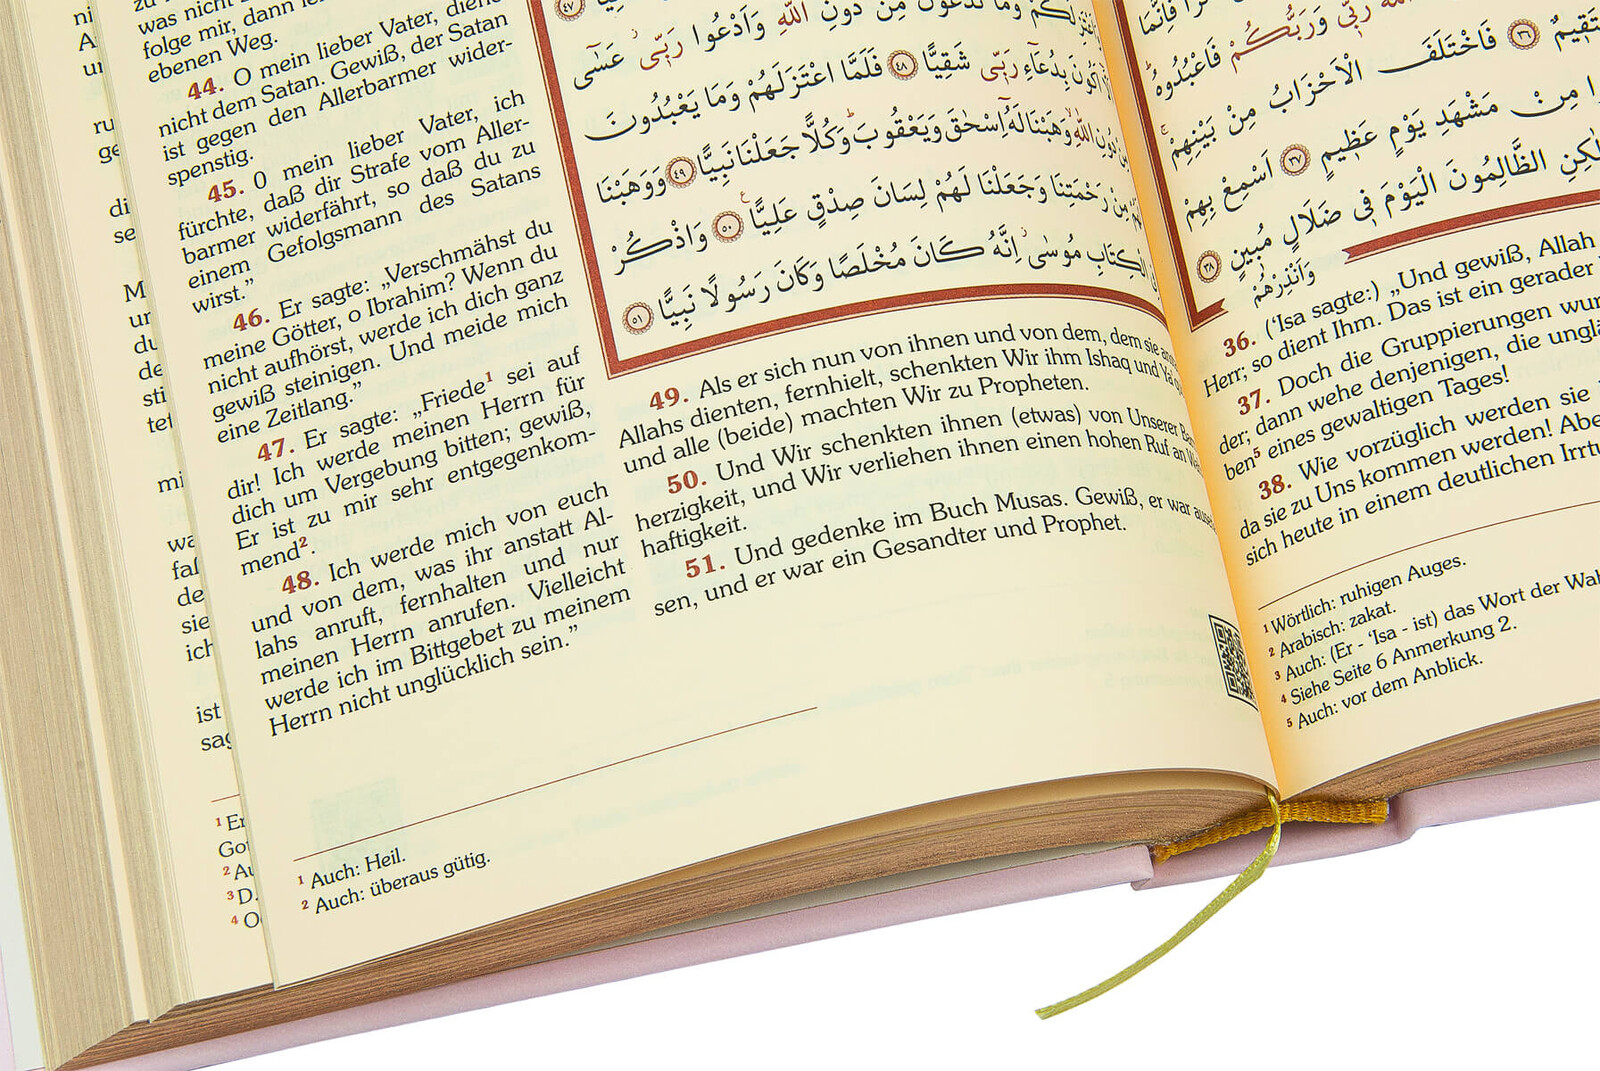 zu
was nicht
folge mir, dann
ebenen Weg.
44. O mein lieber Vater, diene
nicht dem Satan. Gewiß, der Satan
ist gegen den Allerbarmer wider-
spenstig.
45. O mein lieber Vater, ich
fürchte, daß dir Strafe vom Aller-
barmer widerfährt, so daß du zu
einem Gefolgsmann des Satans
wirst.”
46. Er sagte: „Verschmähst du
meine Götter, o Ibrahim? Wenn du
nicht aufhörst, werde ich dich ganz
gewiß steinigen. Und meide mich
eine Zeitlang.”
47. Er sagte: „Friede¹ sei auf
dir! Ich werde meinen Herrn für
dich um Vergebung bitten; gewiß,
Er ist zu mir sehr entgegenkom-
mend².
48. Ich werde mich von euch
und von dem, was ihr anstatt Al-
lahs anruft, fernhalten und nur
meinen Herrn anrufen. Vielleicht
werde ich im Bittgebet zu meinem
Herrn nicht unglücklich sein.”
¹ Auch: Heil.
² Auch: überaus gütig.
تَدْعُونَ مِنْ دُونِ اللّٰهِ وَاَدْعُوا رَبّ۪ىۘ عَسٰٓى
اَكُونَ بِدُعَٓاءِ رَبّ۪ى شَقِيًّا ﴿٤٨﴾ فَلَمَّا اعْتَزَلَهُمْ وَمَا يَعْبُدُونَ
مِنْ دُونِ اللّٰهِۙ وَهَبْنَا لَهُٓ اِسْحٰقَ وَيَعْقُوبَۜ وَكُلًّا جَعَلْنَا نَبِيًّا ﴿٤٩﴾ وَوَهَبْنَا
لَهُمْ مِنْ رَحْمَتِنَا وَجَعَلْنَا لَهُمْ لِسَانَ صِدْقٍ عَلِيًّا۟ ﴿٥٠﴾ وَاذْكُرْ
فِى الْكِتَابِ مُوسٰىۘ اِنَّهُ كَانَ مُخْلَصًا وَكَانَ رَسُولًا نَبِيًّا ﴿٥١﴾
49. Als er sich nun von ihnen und von dem, dem sie
Allahs dienten, fernhielt, schenkten Wir ihm Ishaq und
und alle (beide) machten Wir zu Propheten.
50. Und Wir schenkten ihnen (etwas) von Unserer
herzigkeit, und Wir verliehen ihnen einen hohen Ruf an
haftigkeit.
51. Und gedenke im Buch Musas. Gewiß, er war
sen, und er war ein Gesandter und Prophet.
رَبّ۪ى وَرَبُّكُمْ فَاعْبُدُوهُۜ
﴿٣٦﴾ فَاخْتَلَفَ الْاَحْزَابُ مِنْ بَيْنِهِمْۚ
مِنْ مَشْهَدِ يَوْمٍ عَظ۪يمٍ ﴿٣٧﴾ اَسْمِعْ بِهِمْ
الظَّالِمُونَ الْيَوْمَ ف۪ى ضَلَالٍ مُب۪ينٍ ﴿٣٨﴾
وَاَنْذِرْهُمْ
36. (‘Isa sagte:) „Und gewiß, Allah
Herr; so dient Ihm. Das ist ein gerader
37. Doch die Gruppierungen
der; dann wehe denjenigen, die
ben⁵ eines gewaltigen Tages!
38. Wie vorzüglich werden sie
da sie zu Uns kommen werden!
sich heute in einem deutlichen
¹ Wörtlich: ruhigen Auges.
² Arabisch: zakat.
³ Auch: (Er - ‘Isa - ist) das Wort der
⁴ Siehe Seite 6 Anmerkung 2.
⁵ Auch: vor dem Anblick.